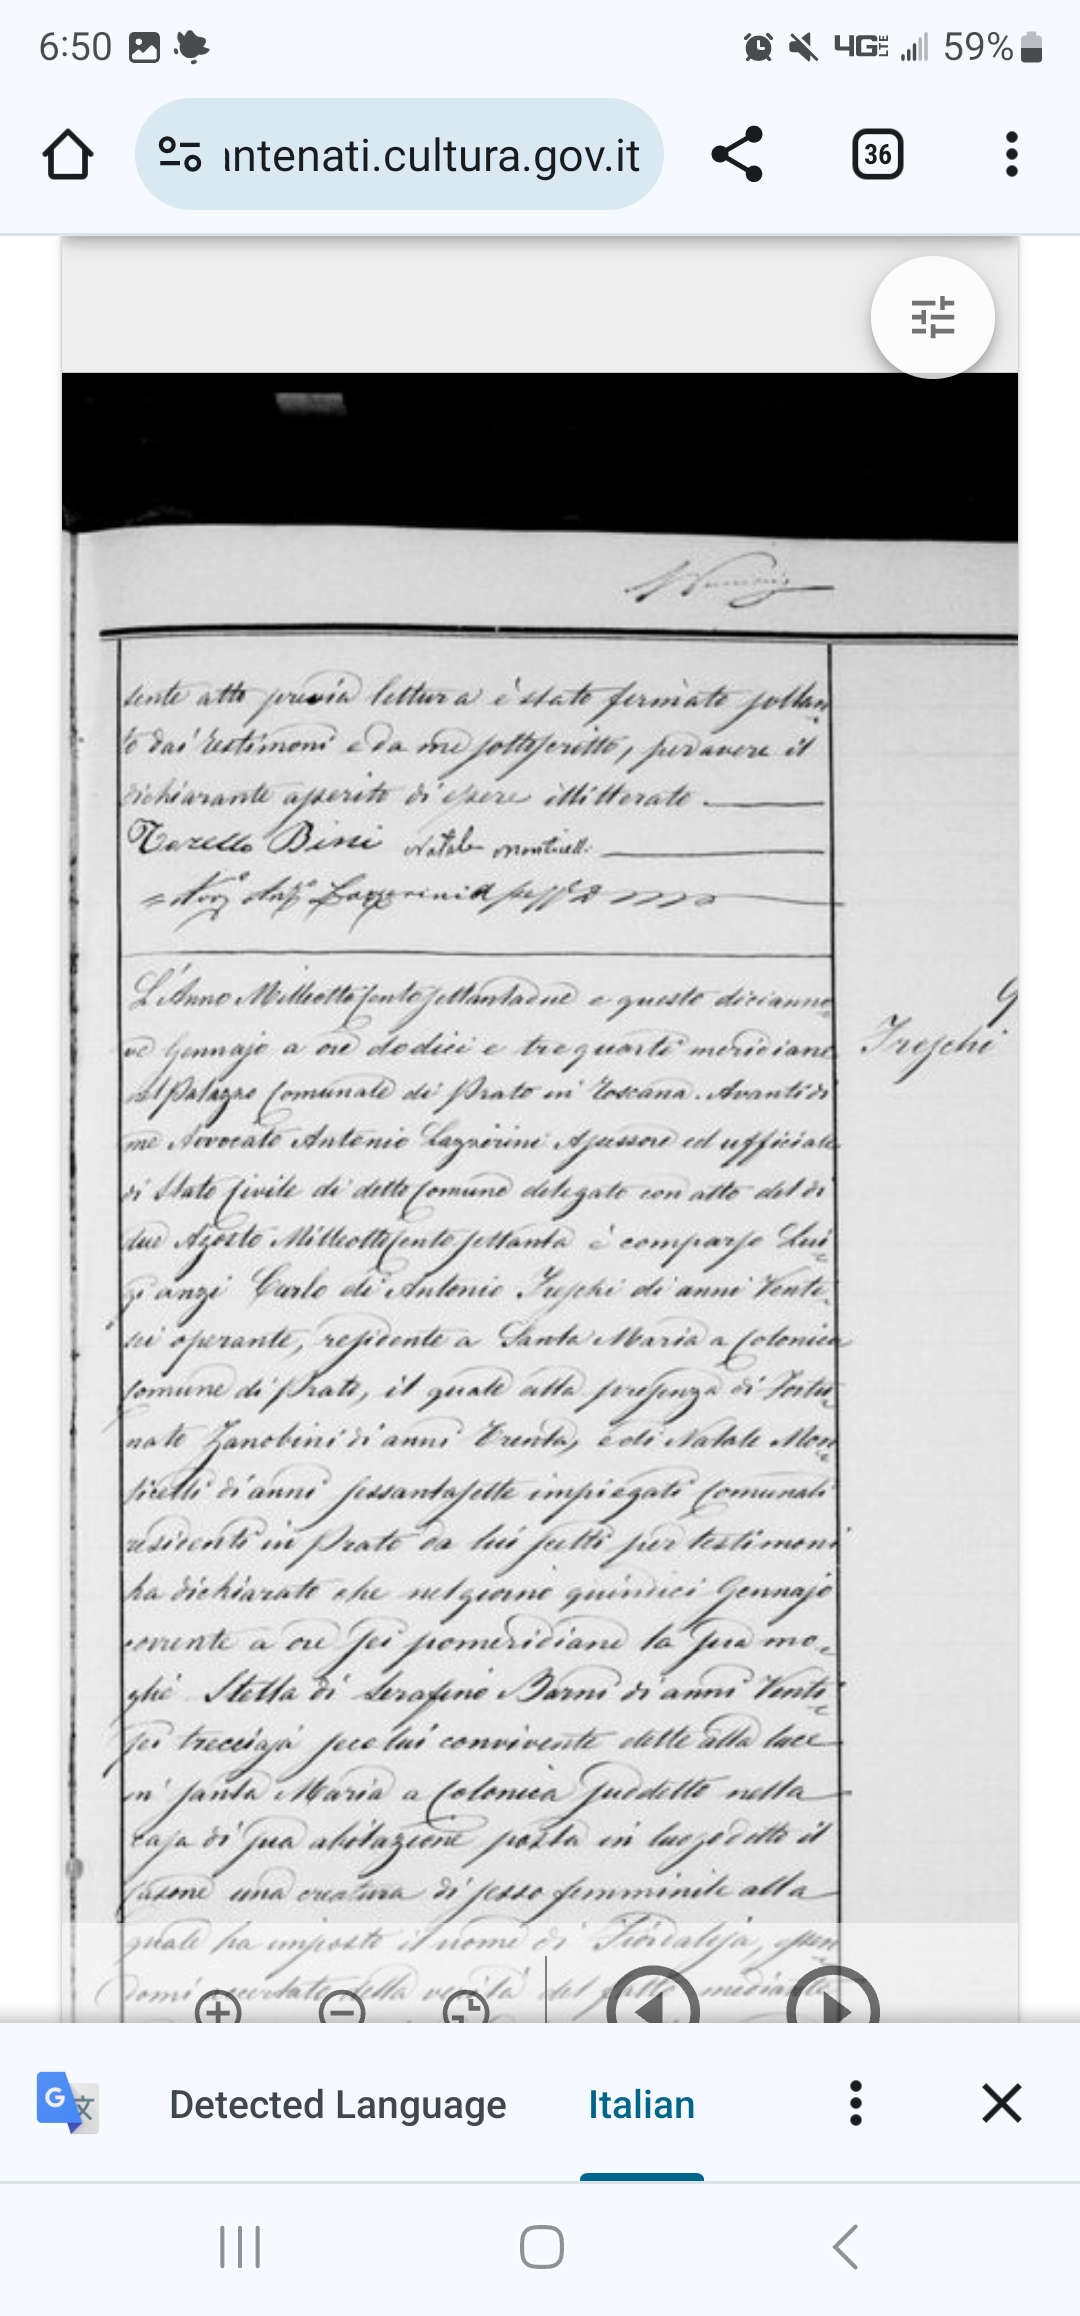 6:50 4G LTE 59%
ntenati.cultura.gov.it 36
sente atto previa lettura è stato firmato soltan
to dai testimoni e da me sottoscritto, per avere il
dichiarante asserito di essere illitterato
Torello Bini Natale Monticelli
L'Anno Milleottocentosettantadue e questo dicianno
ve Gennajo a ore dodici e tre quarti meridiane
nel Palazzo Comunale di Prato in Toscana. Avanti di
me Avvocato Antonio Lazzerini Assessore ed uffiziale
di Stato Civile di detto Comune delegato con atto del di
due Agosto Milleottocentosettanta è comparso Lui
gi anzi Carlo di Antonio Freschi di anni Venti
sei operante, residente a Santa Maria a Colonica
Comune di Prato, il quale alla presenza di Fortu
nato Zanobini di anni Trenta, e di Natale Mon
ticelli di anni sessantasette impiegati Comunali
residenti in Prato da lui scelti per testimoni
ha dichiarato che nel giorno quindici Gennajo
corrente a ore sei pomeridiane la sua mo
glie Stella di Serafino Barni di anni Venti
sei trecciaja seco lui convivente dette alla luce
in Santa Maria a Colonica suddetto nella
casa di sua abitazione posta in luogo detto il
Casone una creatura di sesso femminile alla
quale ha imposto il nome di Fiordalisa, essen
domi accertato della verità del fatto mediante
9
Freschi
Detected Language Italian